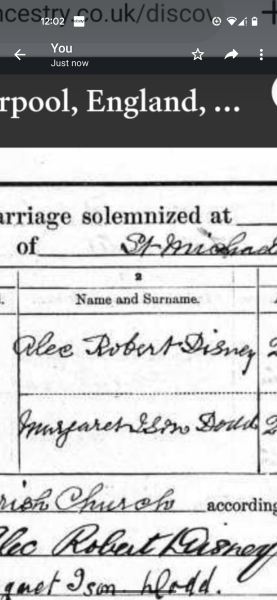 ncestry.co.uk/discov
12:02
You
Just now
rpool, England, ...
arriage solemnized at
of St Michael
2
Name and Surname.
Alec Robert Disney
Margaret Ison Dodd
rish Church according
lec Robert Disney
garet Ison Dodd.